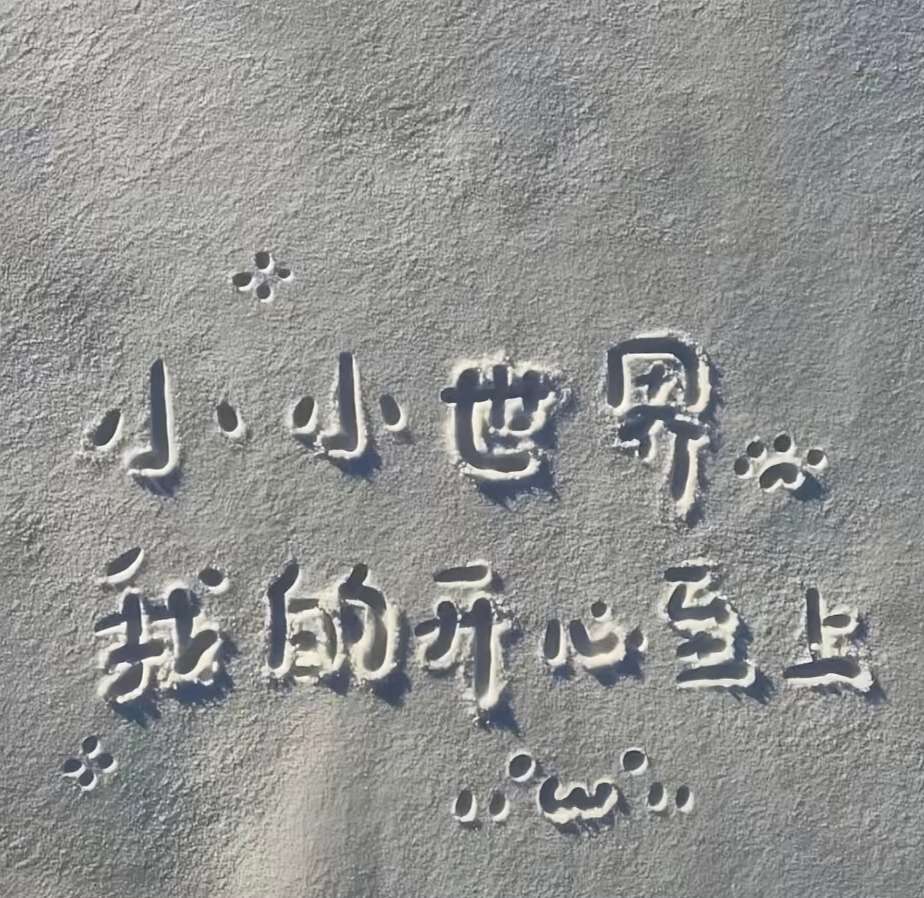 小小世界
我的开心至上